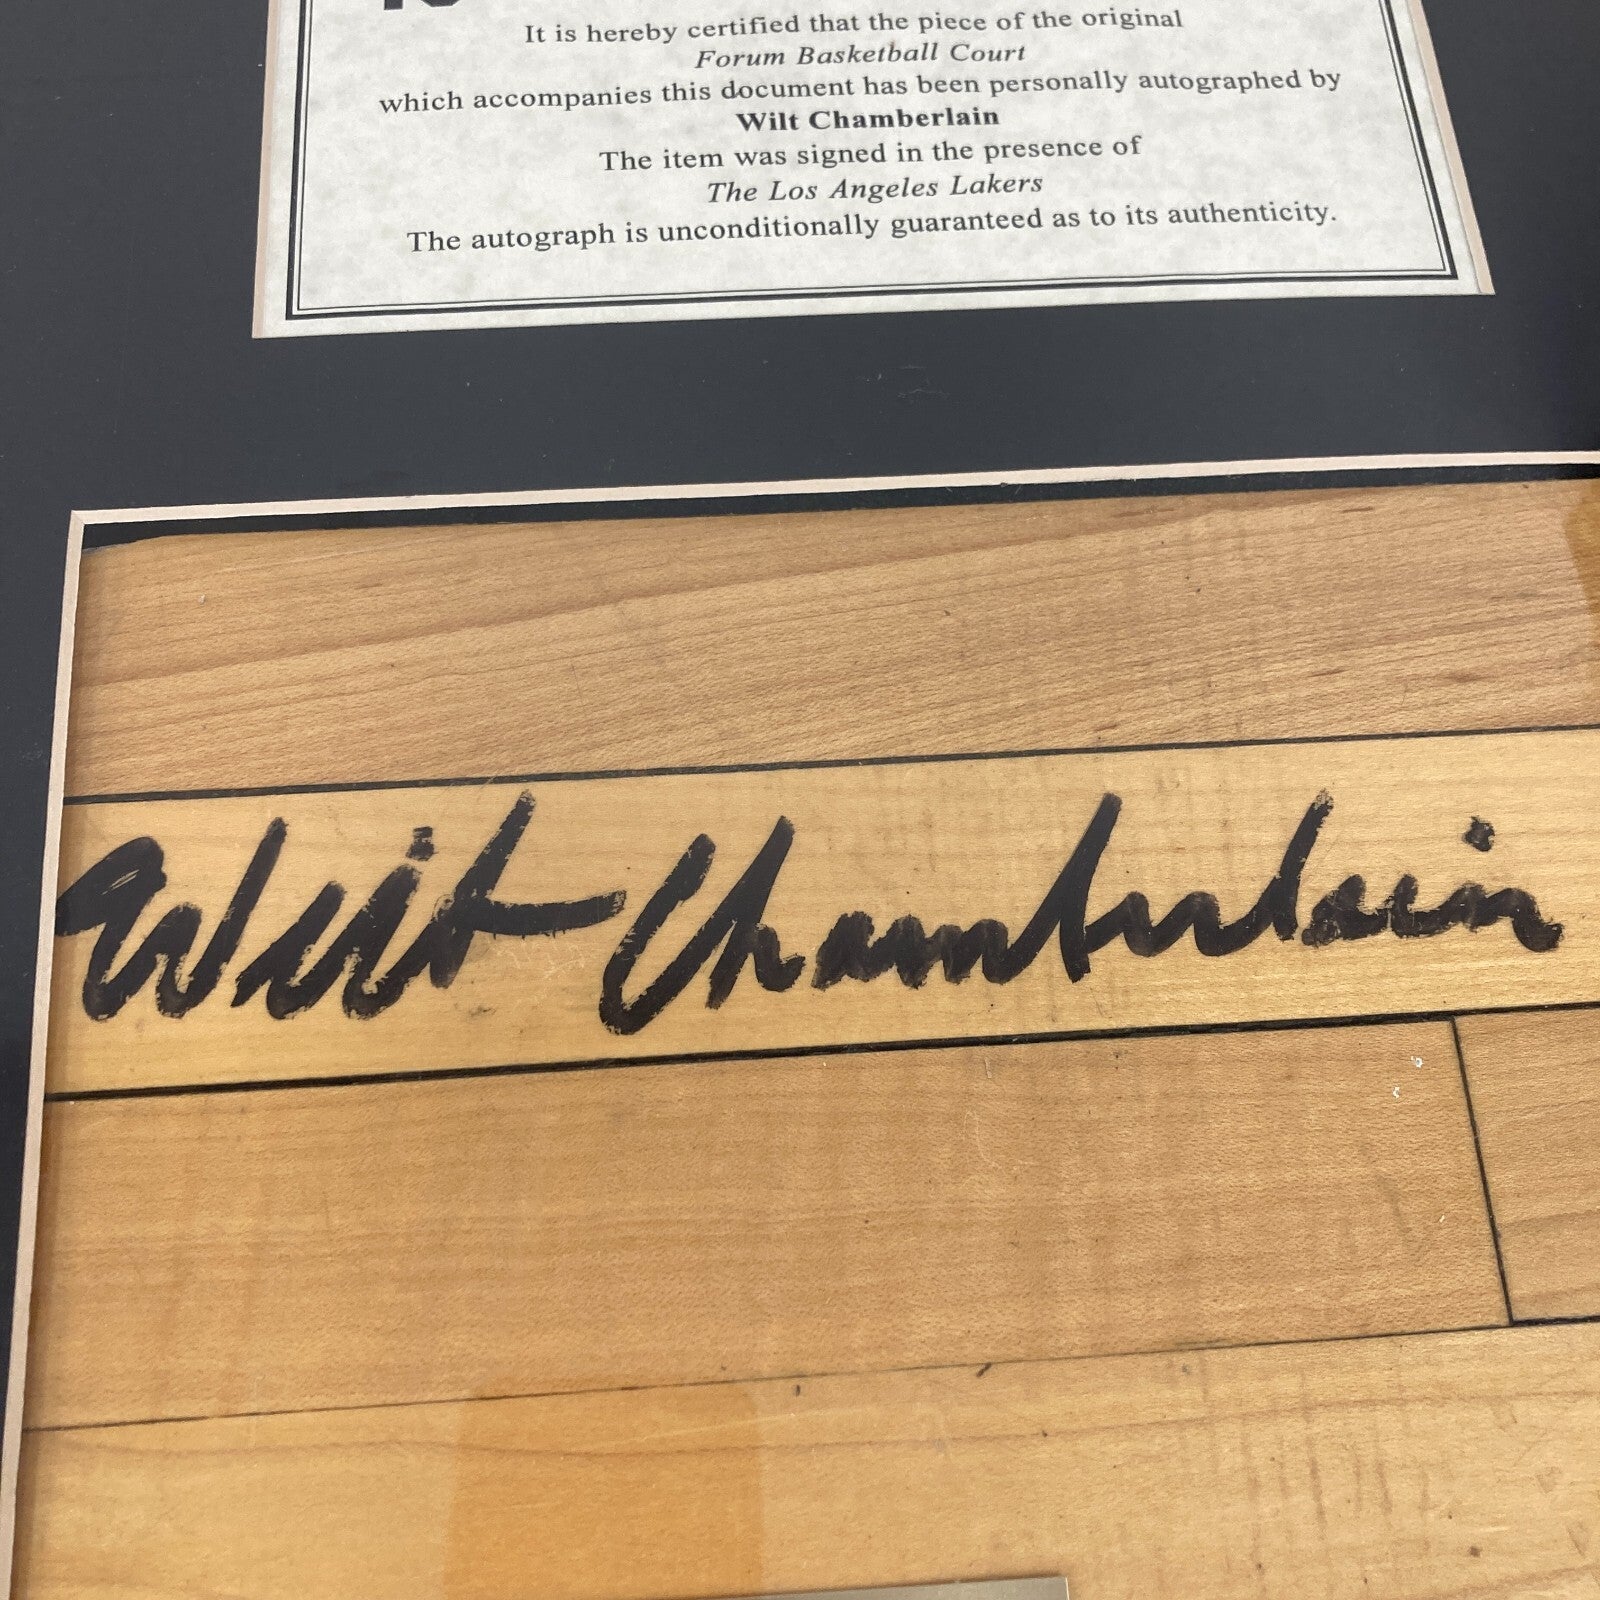 It is hereby certified that the piece of the original
Forum Basketball Court
which accompanies this document has been personally autographed by
Wilt Chamberlain
The item was signed in the presence of
The Los Angeles Lakers
The autograph is unconditionally guaranteed as to its authenticity.
Wilt Chamberlain